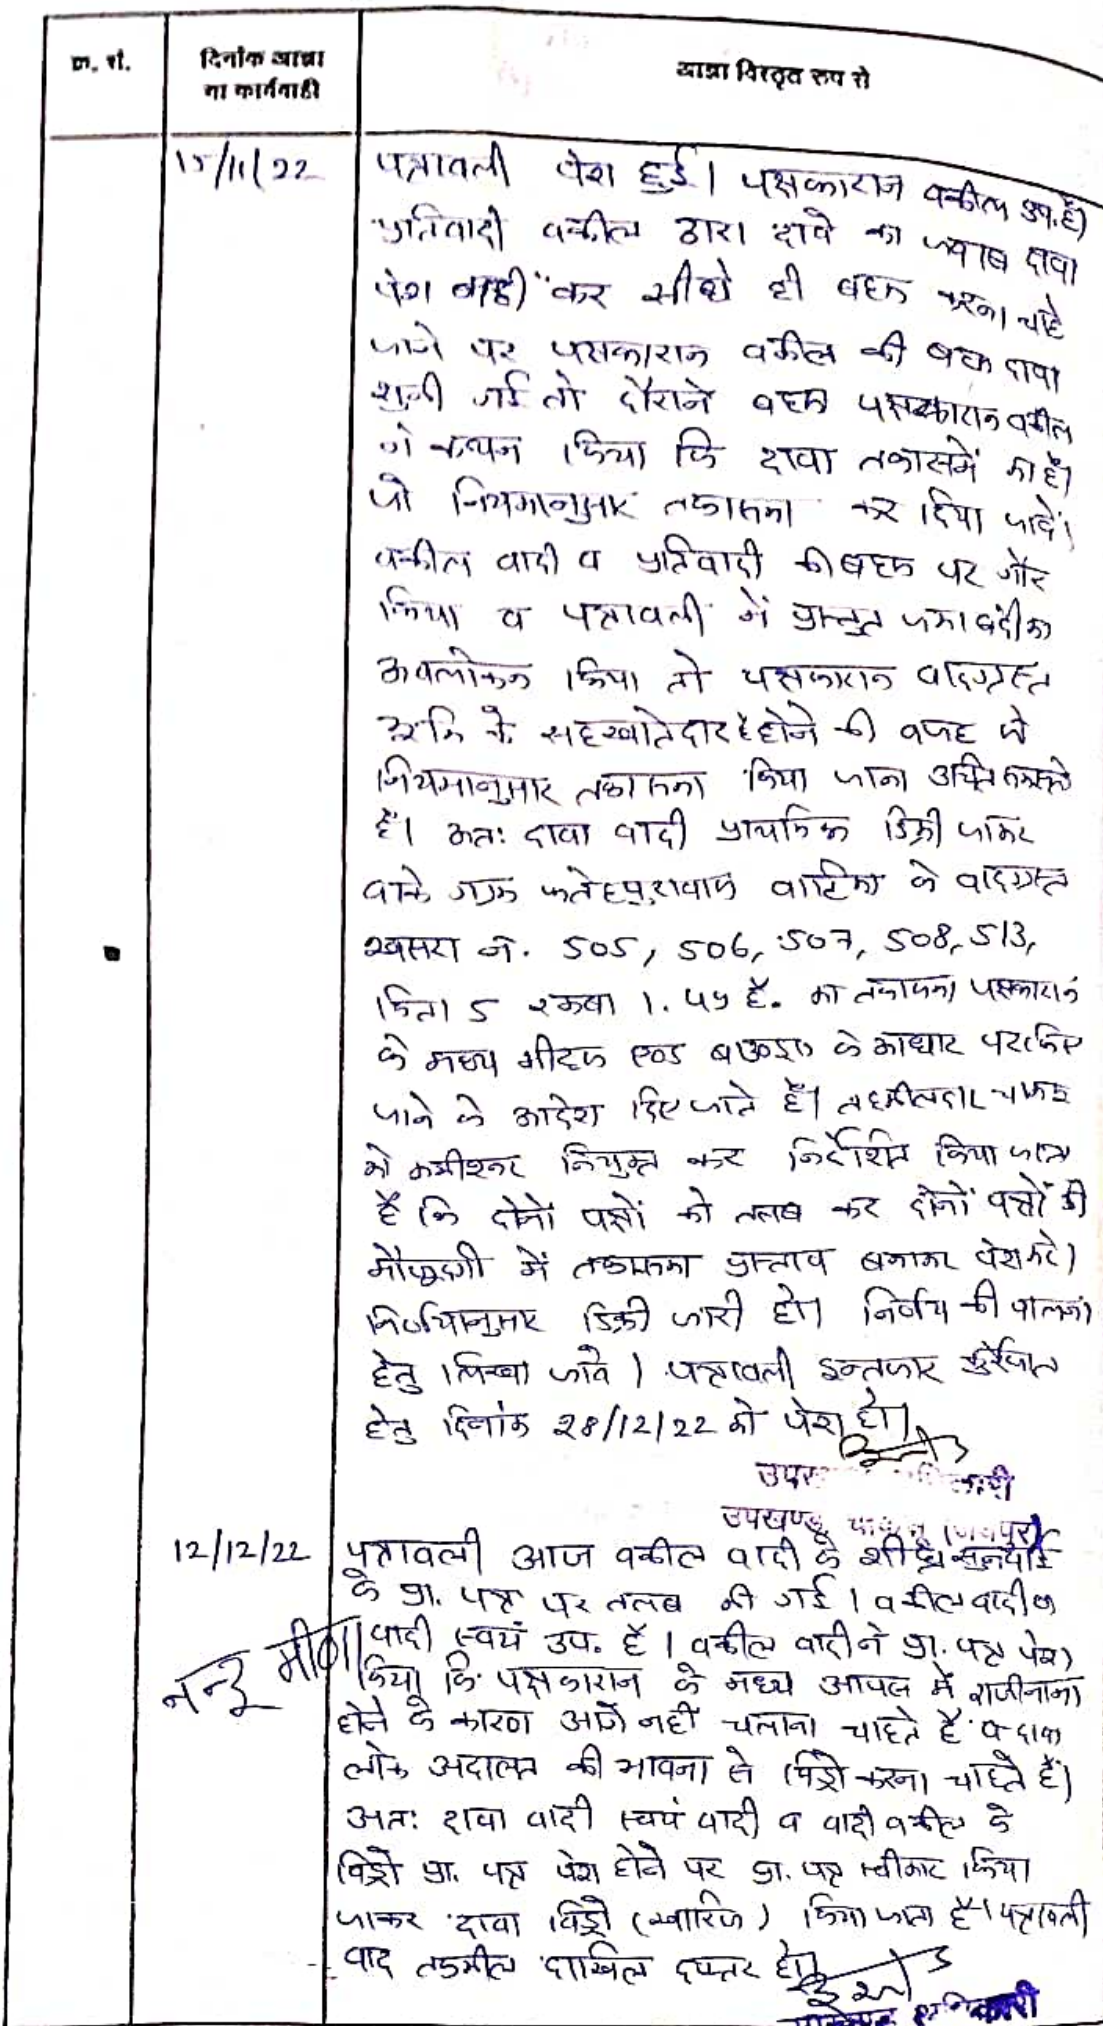 क्र. सं.
दिनांक आज्ञा
या कार्यवाही
आज्ञा विस्तृत रूप से
15/11/22
पत्रावली पेश हुई। पक्षकारान वकील उप. है।
प्रतिवादी वकील द्वारा दावे का जवाब दावा
पेश नहीं कर सीधे ही बहस करना चाहे
जाने पर पक्षकारान वकील की बहस दावा
सुनी गई तो दौराने बहस पक्षकारान वकील
ने कथन किया कि दावा तकासमें का है।
जो नियमानुसार तकासमा कर दिया जावें।
वकील वादी व प्रतिवादी की बहस पर गौर
किया व पत्रावली में प्रस्तुत जमाबंदी का
अवलोकन किया तो पक्षकारान वादग्रस्त
भूमि के सहखातेदार होने की वजह से
नियमानुसार तकासमा किया जाना उचित समझते
हैं। अतः दावा वादी प्राथमिक डिक्री जाकर
वाके ग्राम फतेहपुरावास वाटिका के वादग्रस्त
खसरा नं. 505, 506, 507, 508, 513,
किता 5 रकबा 1.45 है. का तकासमा पक्षकारान
के मध्य मीट्स एण्ड बाउण्ड के आधार पर किए
जाने के आदेश दिए जाते हैं। तहसीलदार चाकसू
को कमीश्नर नियुक्त कर निर्देशित किया जाता
है कि दोनों पक्षों को तलब कर दोनों पक्षों की
मौजूदगी में तकासमा प्रस्ताव बनाकर पेश करे।
निर्णयानुसार डिक्री जारी हो। निर्णय की पालना
हेतु लिखा जावे। पत्रावली इन्तजार
हेतु दिनांक 28/12/22 को पेश हो।
उपखण्ड चाकसू (जयपुर)
12/12/22
पत्रावली आज वकील वादी के शीघ्र सुनवाई
के प्रा. पत्र पर तलब की गई। वकील वादी व
वादी स्वयं उप. है। वकील वादी ने प्रा. पत्र पेश
नन्दू मीणा
किया कि पक्षकारान के मध्य आपस में राजीनामा
होने के कारण आगे नहीं चलाना चाहते है व दावा
लोक अदालत की भावना से विड्रो करना चाहते हैं।
अतः दावा वादी स्वयं वादी व वादी वकील के
विड्रो प्रा. पत्र पेश होने पर प्रा. पत्र स्वीकार किया
जाकर दावा विड्रो (खारिज) किया जाता है। पत्रावली
बाद तकमील दाखिल दफ्तर हो।